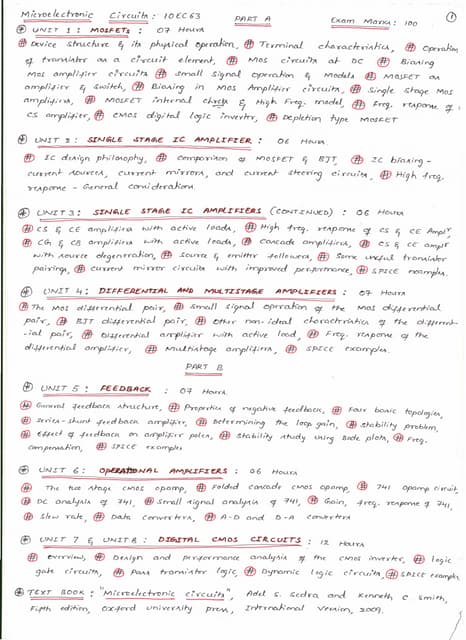 Microelectronic Circuits: 10EC63 PART A Exam Marks: 100 1
* UNIT 1: MOSFETs: 07 Hours
# Device structure & its physical operation, # Terminal characteristics, # Operation
of transistor as a circuit element, # MOS circuits at DC # Biasing
MOS amplifier circuits # Small signal operation & Models # MOSFET as
amplifier & switch, # Biasing in MOS Amplifier circuits, # Single stage MOS
amplifiers, # MOSFET internal & High Freq. model, # Freq. response of
CS amplifier, # CMOS digital logic inverter, # Depletion type MOSFET
* UNIT 2: SINGLE STAGE IC AMPLIFIER: 06 Hours
# IC design philosophy, # comparison of MOSFET & BJT, # IC biasing -
current sources, current mirrors, and current steering circuits, # High freq.
response - General considerations
* UNIT 3: SINGLE STAGE IC AMPLIFIERS (CONTINUED): 06 Hours
# CS & CE amplifiers with active loads, # High freq. response of CS & CE Amplr,
# CG & CB amplifiers with active loads, # Cascode amplifiers, # CS & CE amplr
with source degeneration, # source & emitter followers, # Some useful transistor
pairings, # current mirror circuits with improved performance, # SPICE examples.
* UNIT 4: DIFFERENTIAL AND MULTISTAGE AMPLIFIERS: 07 Hours
# The MOS differential pair, # Small signal operation of the MOS differential
pair, # BJT differential pair, # Other non-ideal characteristics of the different-
-ial pair, # Differential amplifier with active load, # Freq. response of the
differential amplifier, # Multistage amplifiers, # SPICE examples.
PART B
* UNIT 5: FEEDBACK: 07 Hours
# General feedback structure, # Properties of negative feedback, # Four basic topologies,
# series-shunt feedback amplifier, # Determining the loop gain, # Stability problem,
# Effect of feedback on amplifier poles, # Stability study using Bode plots, # Freq.
compensation, # SPICE examples
* UNIT 6: OPERATIONAL AMPLIFIERS: 06 Hours
# The two stage CMOS opamp, # Folded cascode CMOS opamp, # 741 opamp circuit,
# DC analysis of 741, # Small signal analysis of 741, # Gain, freq. response of 741,
# Slew rate, # Data Converters, # A-D and D-A converters
* UNIT 7 & UNIT 8: DIGITAL CMOS CIRCUITS: 12 Hours
# Overview, # Design and performance analysis of the CMOS inverter, # logic
gate circuits, # Pass transistor logic, # Dynamic logic circuits, # SPICE examples
* TEXT BOOK: "Microelectronic circuits", Adel S. Sedra and Kenneth C Smith,
Fifth edition, Oxford University press, International Version, 2009.